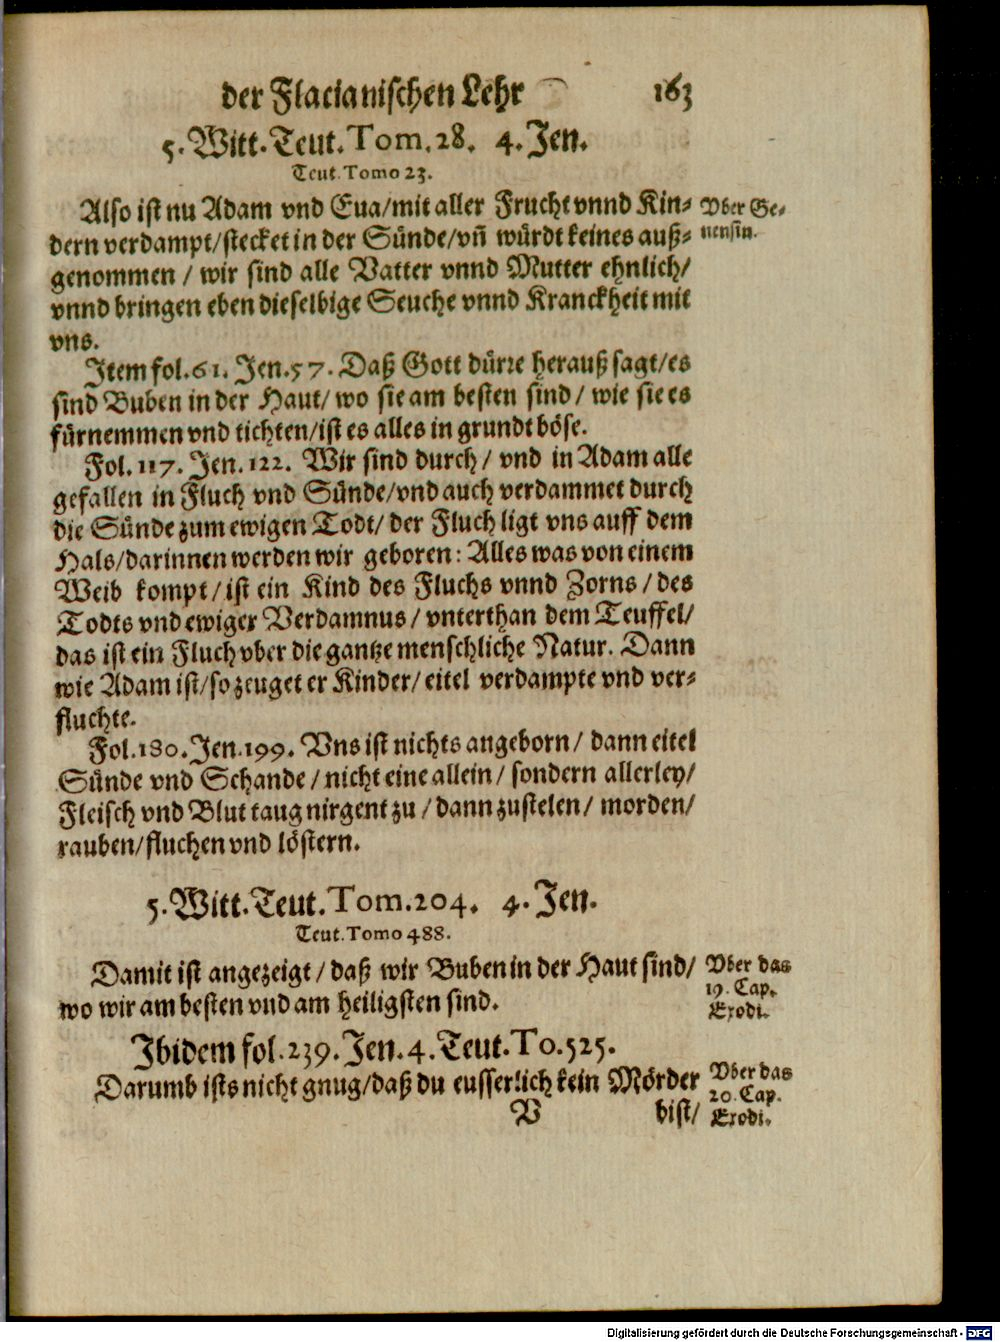 der Flacianischen Lehr 163
5. Witt. Teut. Tom. 28. 4. Jen.
Teut. Tomo 23.
Also ist nu Adam vnd Eua/mit aller Frucht vnnd Kin-
Vber Ge-
dern verdampt/stecket in der Sünde/vñ würdt keines auß-
nensin.
genommen / wir sind alle Vatter vnnd Mutter ehnlich/
vnnd bringen eben dieselbige Seuche vnnd Kranckheit mit
vns.
Item fol. 61. Jen. 57. Daß Gott dürre herauß sagt/es
sind Buben in der Haut/ wo sie am besten sind / wie sie es
fürnemmen vnd tichten/ist es alles in grundt böse.
Fol. 117. Jen. 122. Wir sind durch / vnd in Adam alle
gefallen in Fluch vnd Sünde/vnd auch verdammet durch
die Sünde zum ewigen Todt/ der Fluch ligt vns auff dem
Hals/darinnen werden wir geboren: Alles was von einem
Weib kompt/ist ein Kind des Fluchs vnnd Zorns / des
Todts vnd ewiger Verdamnus / vnterthan dem Teuffel/
das ist ein Fluch vber die gantze menschliche Natur. Dann
wie Adam ist/so zeuget er Kinder/ eitel verdampte vnd ver-
fluchte.
Fol. 180. Jen. 199. Vns ist nichts angeborn / dann eitel
Sünde vnd Schande / nicht eine allein / sondern allerley/
Fleisch vnd Blut taug nirgent zu / dann zustelen / morden/
rauben/fluchen vnd löstern.
5. Witt. Teut. Tom. 204. 4. Jen.
Teut. Tomo 488.
Damit ist angezeigt / daß wir Buben in der Haut sind/
Vber das
wo wir am besten vnd am heiligsten sind.
19. Cap.
Exodi.
Ibidem fol. 239. Jen. 4. Teut. To. 525.
Darumb ists nicht gnug/daß du eusserlich kein Mörder
Vber das
20. Cap.
V bist/
Exodi.
Digitalisierung gefördert durch die Deutsche Forschungsgemeinschaft - DFG